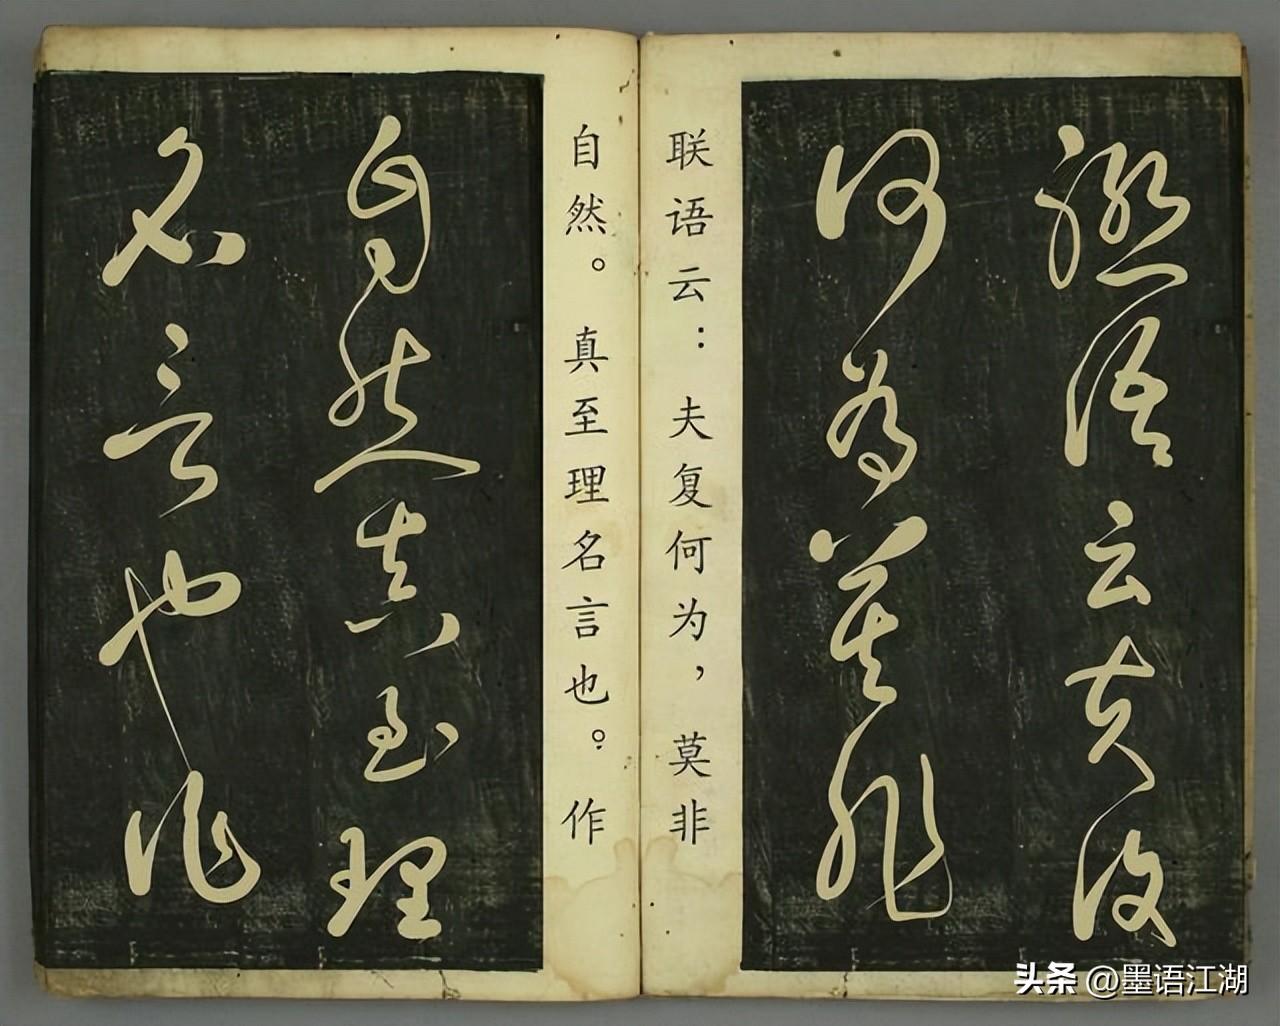 聯語云夫復
何為莫非
联语云：夫复何为，莫非
自然。真至理名言也。作
自然真至理
名言也作
头条 @墨语江湖